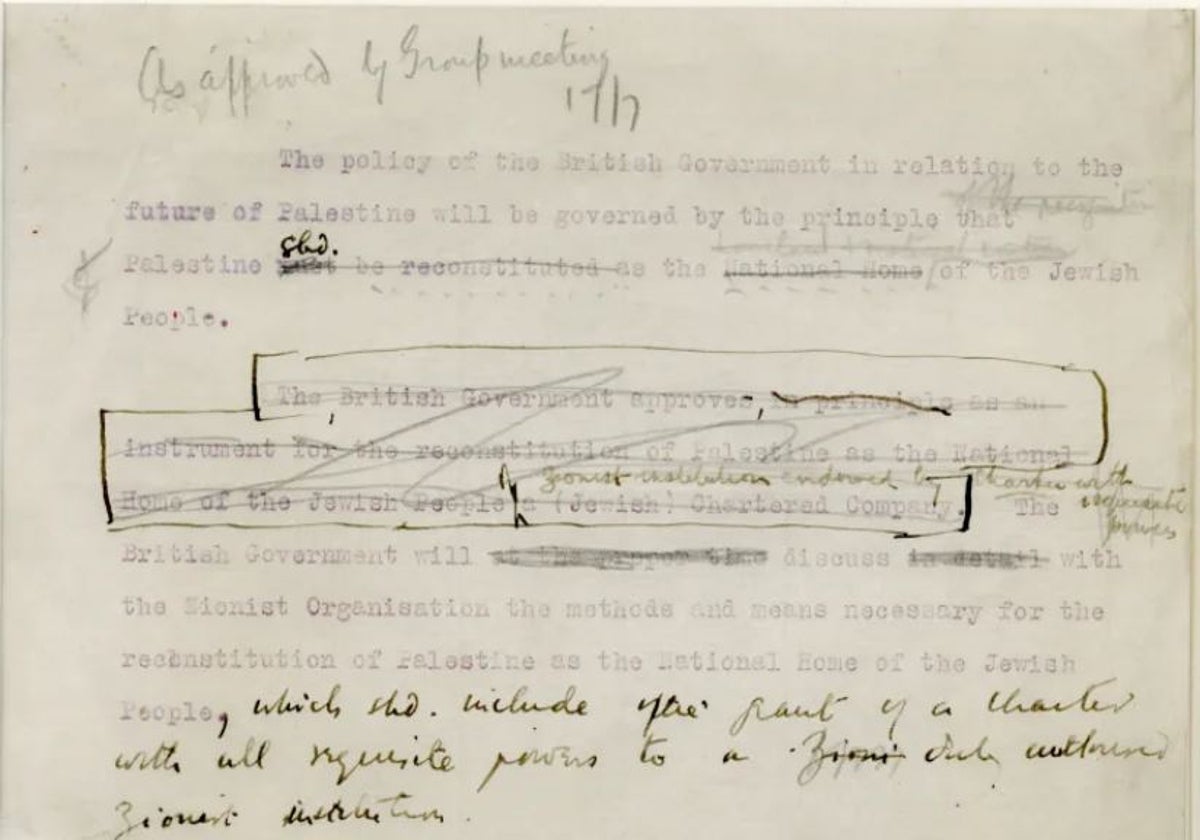 As approved by Group meeting
17/7
The policy of the British Government in relation to the
of the recognition
future of Palestine will be governed by the principle that
shd.
Palestine must be reconstituted as the National Home of the Jewish
People.
The British Government approves, in principle as an
instrument for the reconstitution of Palestine as the National
A Zionist institution endowed by Charter with
requisite
powers
Home of the Jewish People a (Jewish) Chartered Company. The
British Government will at the proper time discuss in detail with
the Zionist Organisation the methods and means necessary for the
reconstitution of Palestine as the National Home of the Jewish
People, which shd. include the grant of a Charter
with all requisite powers to a Zioni duly authorised
Zionist institution.